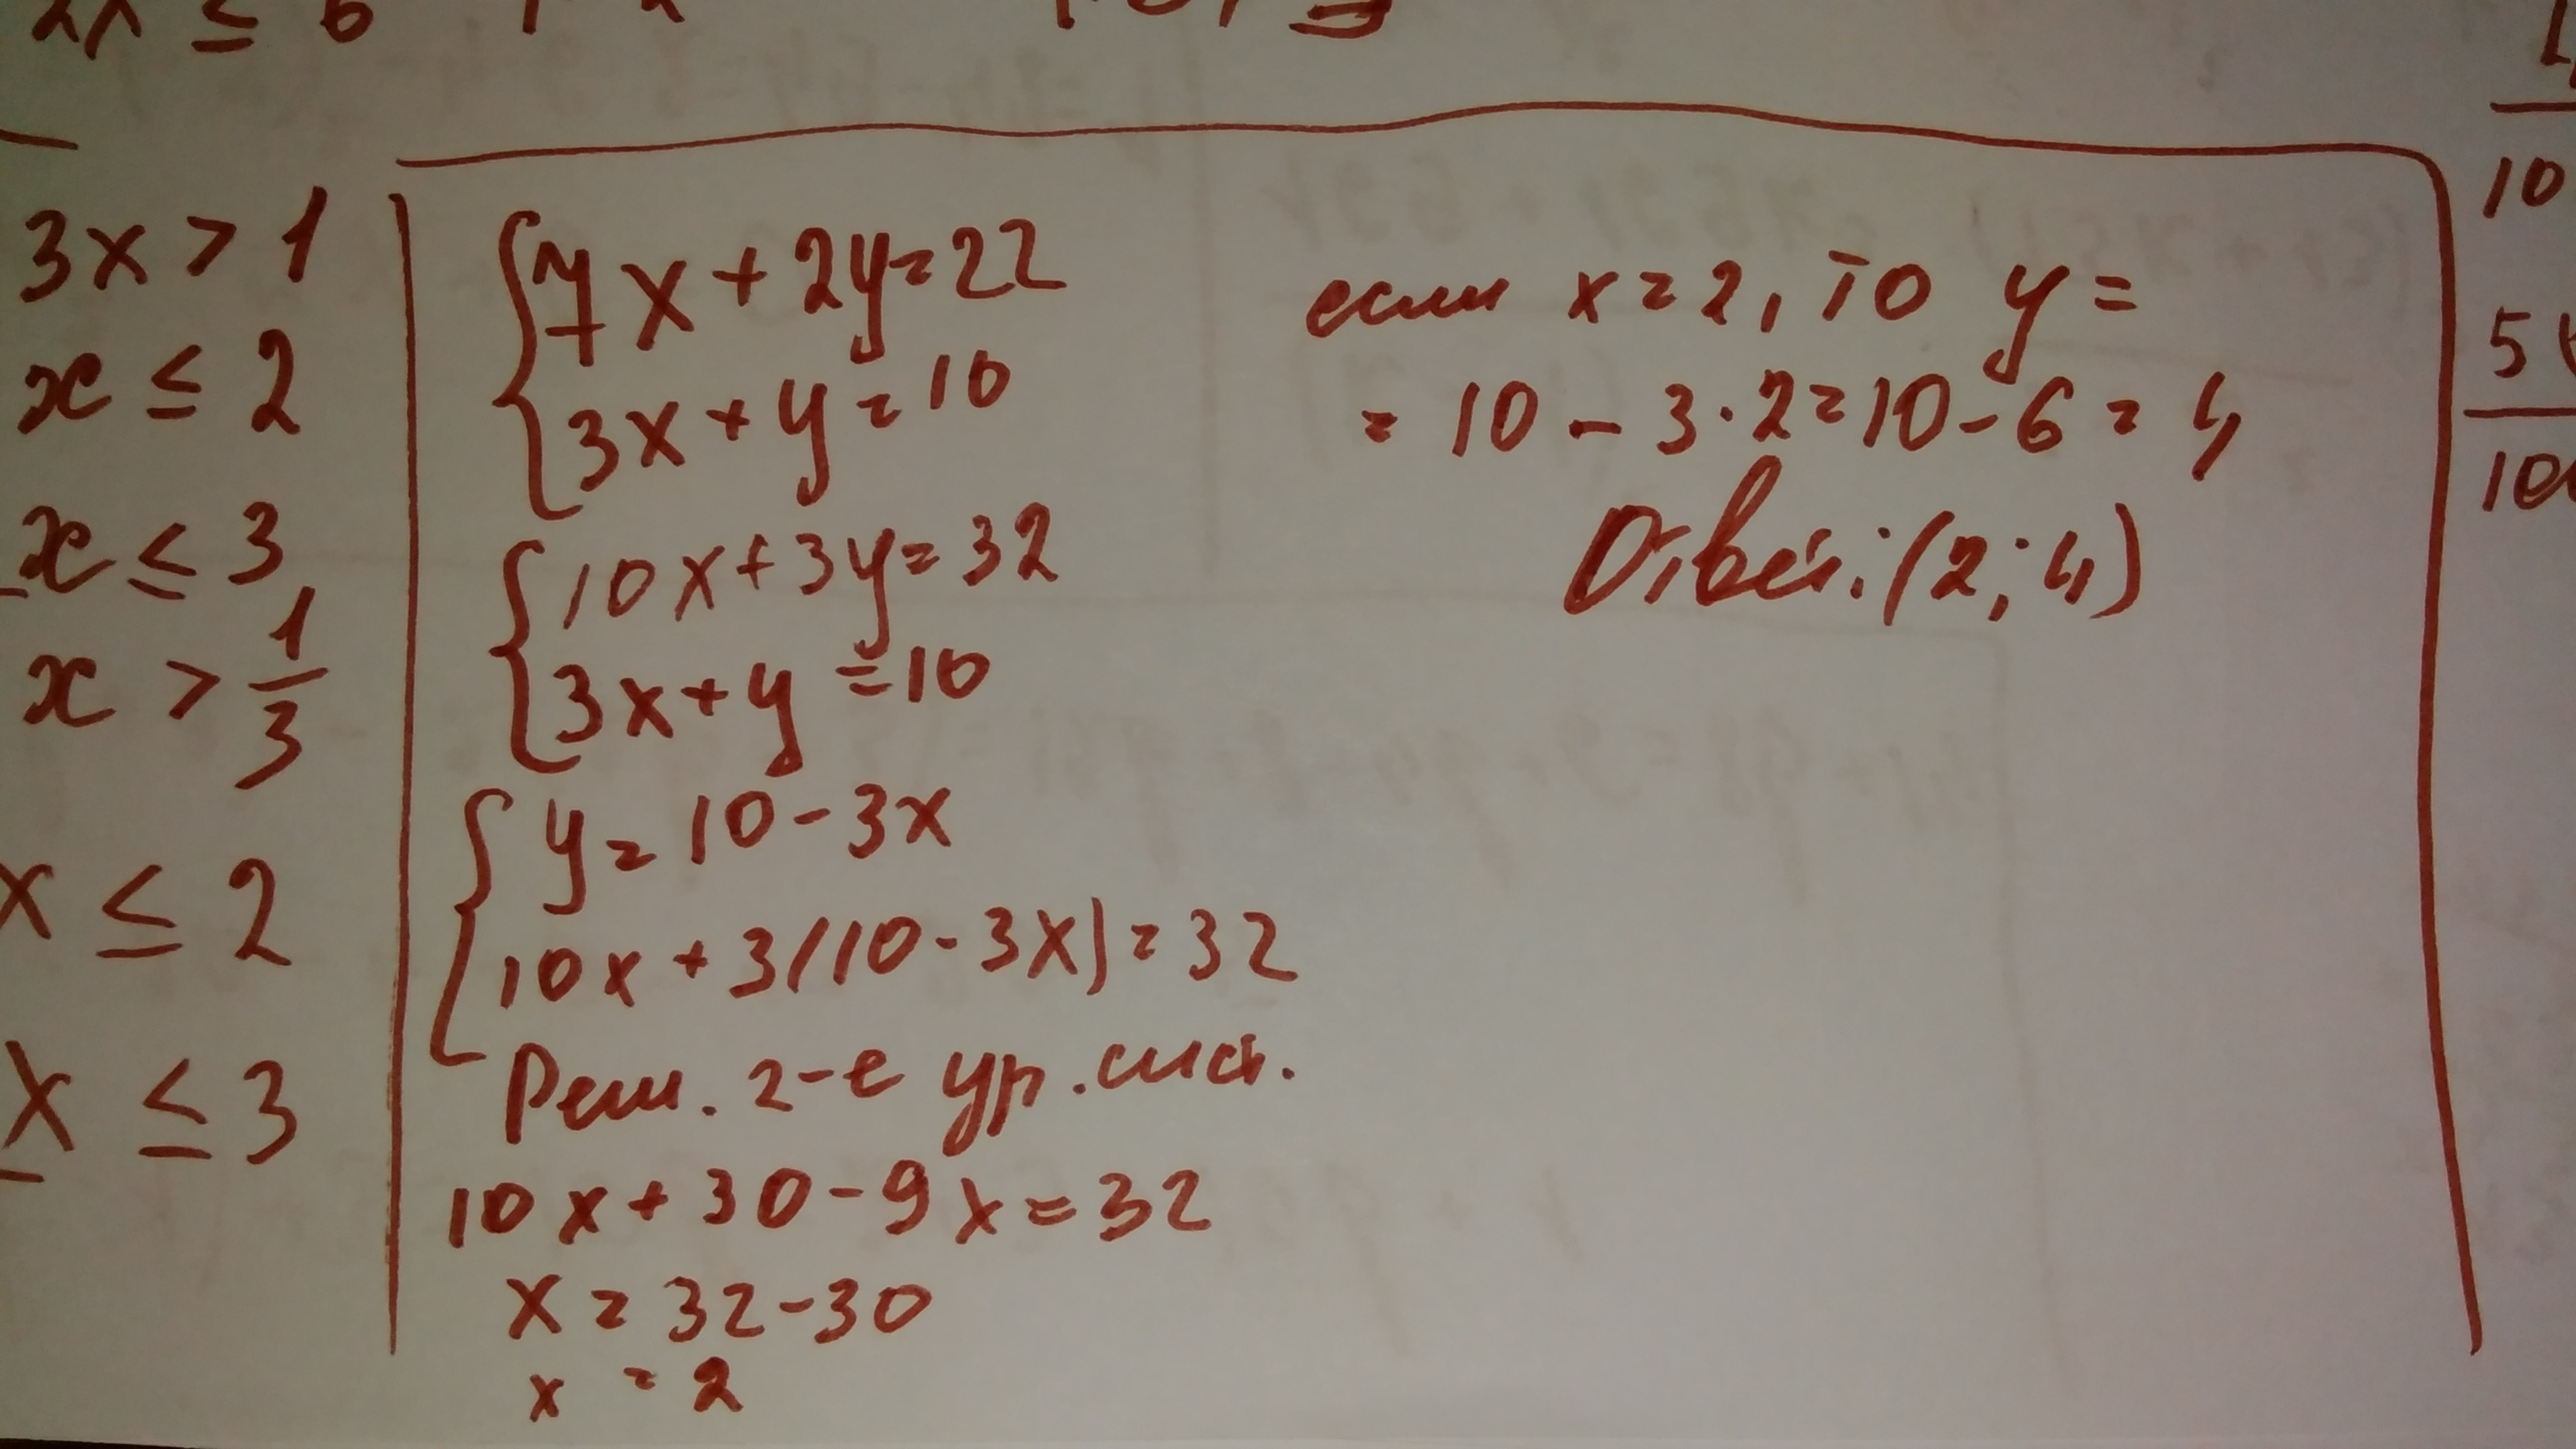 2x ≤ 6
3x > 1
x ≤ 2
x ≤ 3
x > 1/3
x ≤ 2
x ≤ 3
{7x + 2y = 22
{3x + y = 10
{10x + 3y = 32
{3x + y = 10
{y = 10 - 3x
{10x + 3(10 - 3x) = 32
Реш. 2-е ур. сист.
10x + 30 - 9x = 32
x = 32 - 30
x = 2
если x = 2, то y =
= 10 - 3 · 2 = 10 - 6 = 4
Ответ: (2; 4)
10
5
10